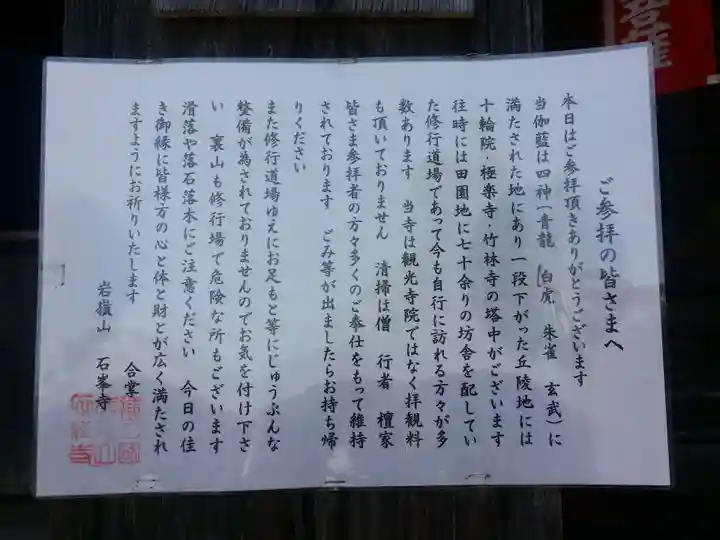 ご参拝の皆さまへ
本日はご参拝頂きありがとうございます
当伽藍は四神（青龍　白虎　朱雀　玄武）に
満たされた地にあり一段下がった丘陵地には
十輪院・極楽寺・竹林寺の塔中がございます
往時には田園地に七十余りの坊舎を配してい
た修行道場であって今も自行に訪れる方々が多
数あります　当寺は観光寺院ではなく拝観料
も頂いておりません　清掃は僧　行者　檀家
皆さま参拝者の方々多くのご奉仕をもって維持
されております　ごみ等が出ましたらお持ち帰
りください
また修行道場ゆえにお足もと等にじゅうぶんな
整備が為されておりませんのでお気を付け下さ
い　裏山も修行場で危険な所もございます
滑落や落石落木にご注意ください　今日の佳
き御縁に皆様方の心と体と財とが広く満たされ
ますようにお祈りいたします
合掌
岩嶺山　石峯寺
菩薩